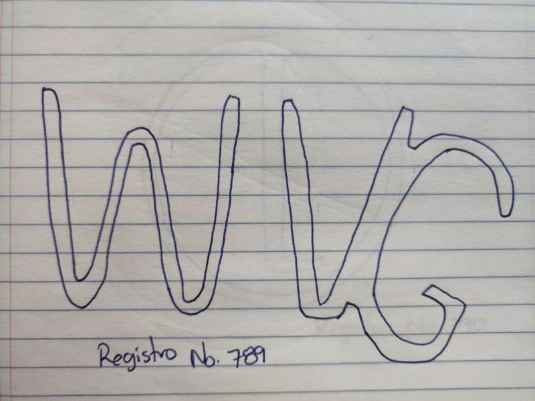 W VG
Registro No. 789